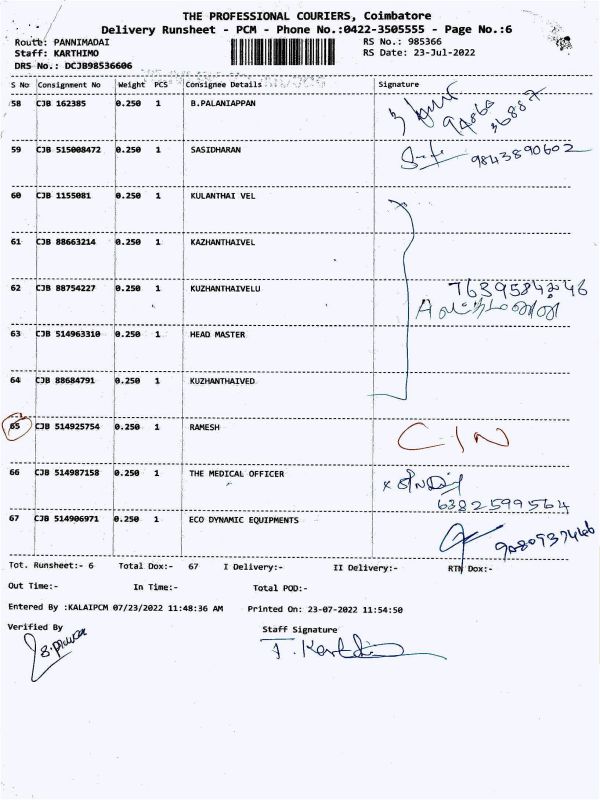 THE PROFESSIONAL COURIERS, Coimbatore
Delivery Runsheet - PCM - Phone No.:0422-3505555 - Page No.:6
Route: PANNIMADAI
RS No.: 985366
Staff: KARTHIMO
RS Date: 23-Jul-2022
DRS No.: DCJB98536606
S No Consignment No Weight PCS Consignee Details Signature
58 CJB 162385 0.250 1 B.PALANIAPPAN
59 CJB 515008472 0.250 1 SASIDHARAN 9843890602
60 CJB 1155081 0.250 1 KULANTHAI VEL
61 CJB 88663214 0.250 1 KAZHANTHAIVEL
62 CJB 88754227 0.250 1 KUZHANTHAIVELU
63 CJB 514963310 0.250 1 HEAD MASTER
64 CJB 88684791 0.250 1 KUZHANTHAIVED
65 CJB 514925754 0.250 1 RAMESH C-IN
66 CJB 514987158 0.250 1 THE MEDICAL OFFICER
6382599564
67 CJB 514906971 0.250 1 ECO DYNAMIC EQUIPMENTS
Tot. Runsheet:- 6 Total Dox:- 67 I Delivery:- II Delivery:- RTN Dox:-
Out Time:- In Time:- Total POD:-
Entered By :KALAIPCM 07/23/2022 11:48:36 AM Printed On: 23-07-2022 11:54:50
Verified By Staff Signature